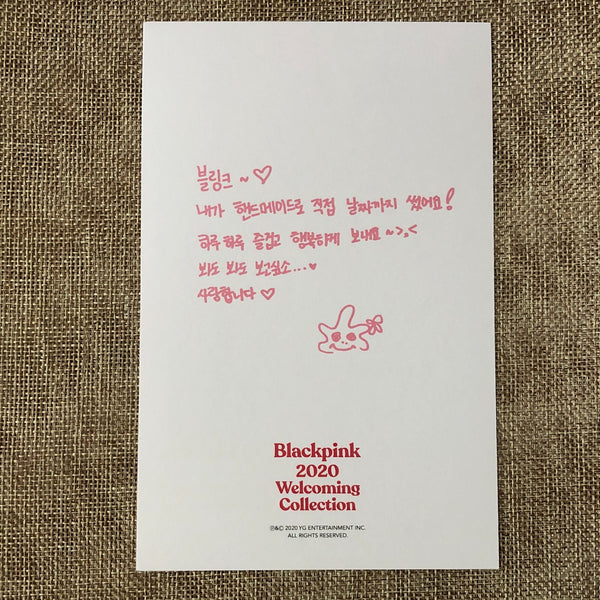 블링크 ~ ♡
내가 핸드메이드로 직접 날짜까지 썼어요!
하루하루 즐겁고 행복하게 보내요~>,<
봐도 봐도 보고싶소...♥
사랑합니다 ♡
Blackpink
2020
Welcoming
Collection
℗&© 2020 YG ENTERTAINMENT INC.
ALL RIGHTS RESERVED.